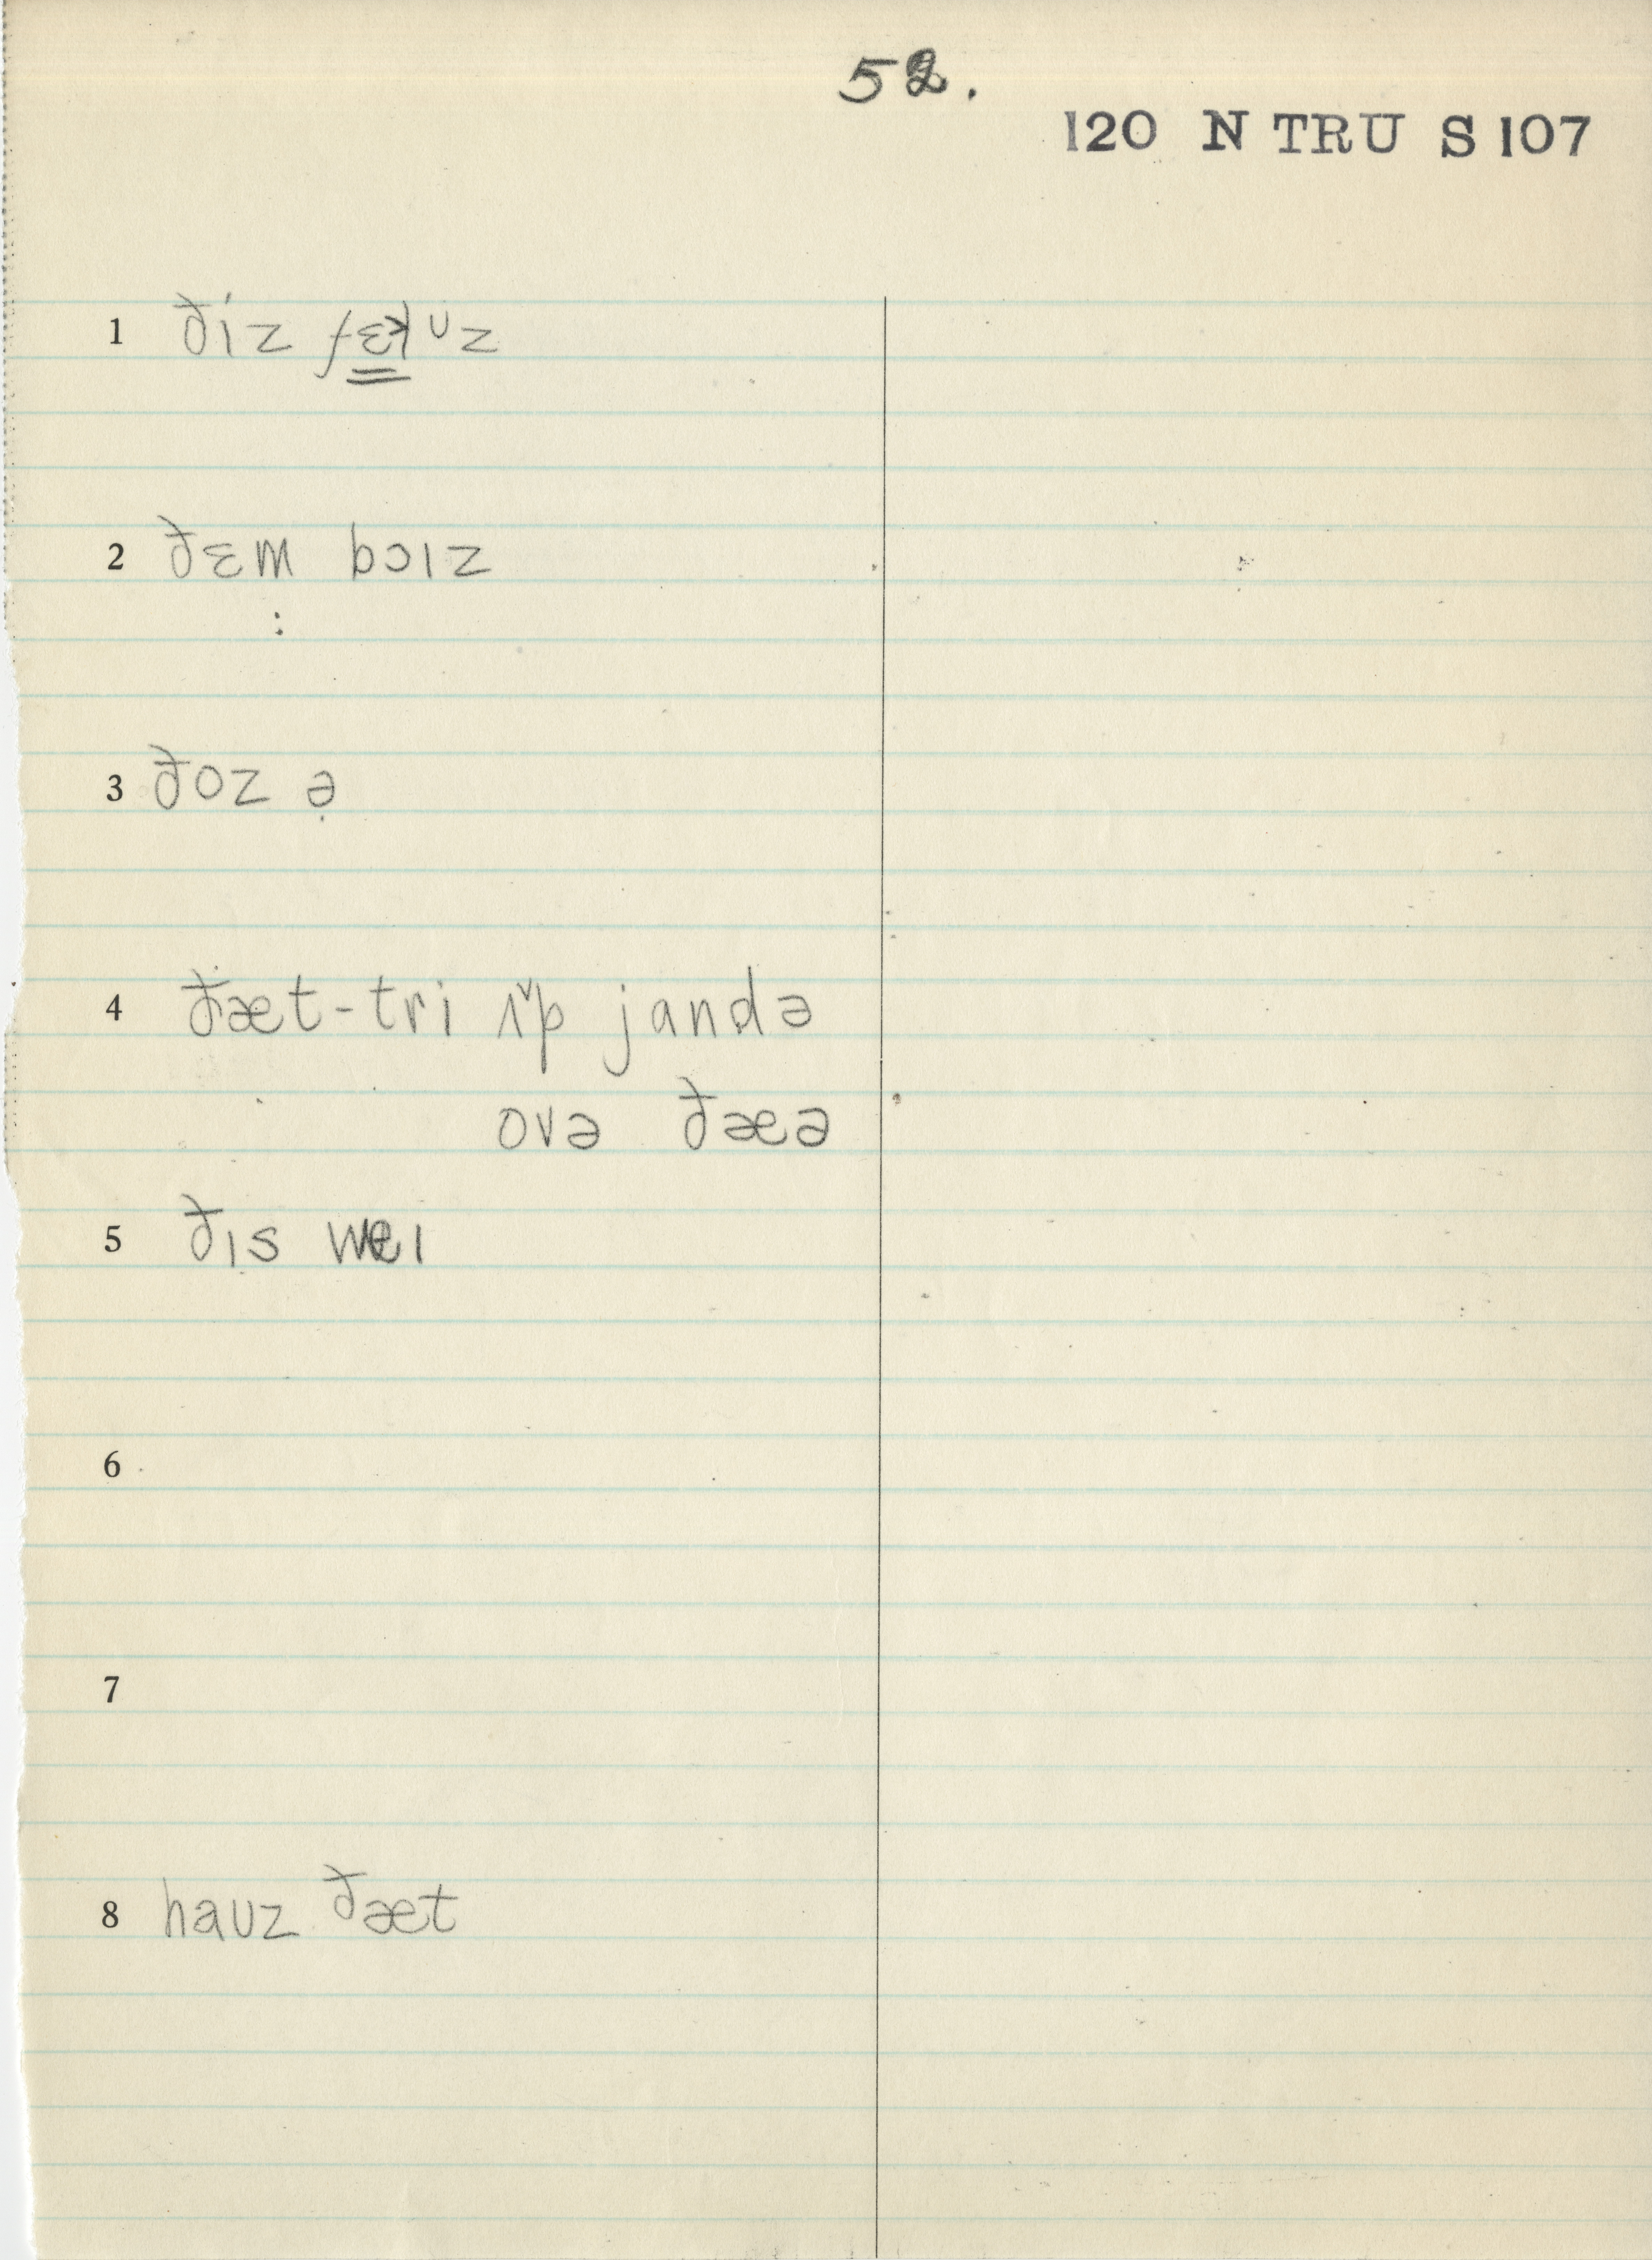 52.
120 N TRU S 107
1 ðiz fɛɫʊz
2 ðɛm bɔɪz
3 ðoz ə
4 ðæt-tri ʌ̌p jandə
ovə ðæə
5 ðɪs weɪ
6
7
8 haʊz ðæt